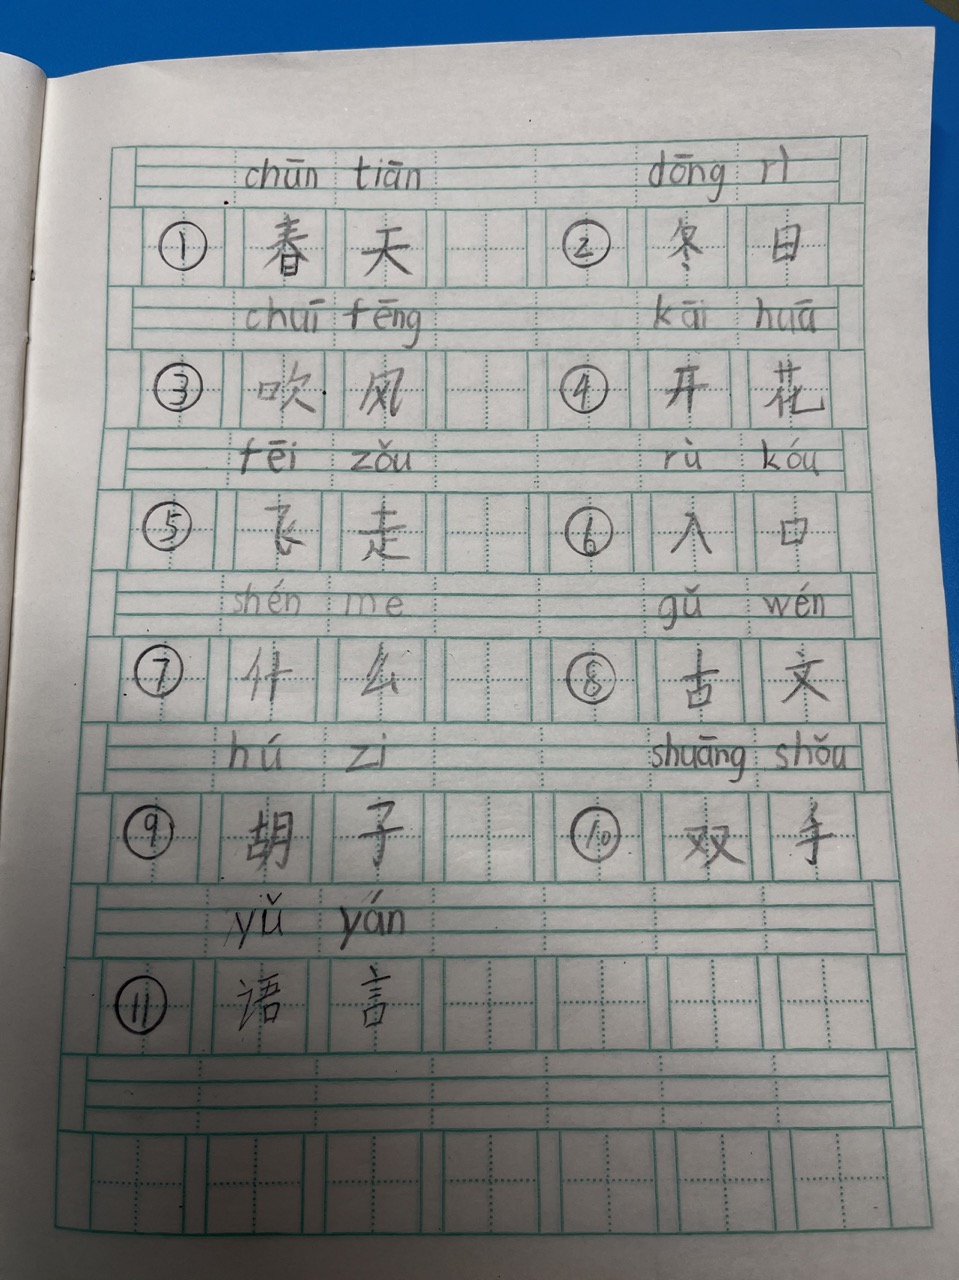 chūn tiān dōng rì
① 春天 ② 冬日
chuī fēng kāi huā
③ 吹风 ④ 开花
fēi zǒu rù kóu
⑤ 飞走 ⑥ 入口
shén me gǔ wén
⑦ 什么 ⑧ 古文
hú zi shuāng shǒu
⑨ 胡子 ⑩ 双手
yǔ yán
⑪ 语言